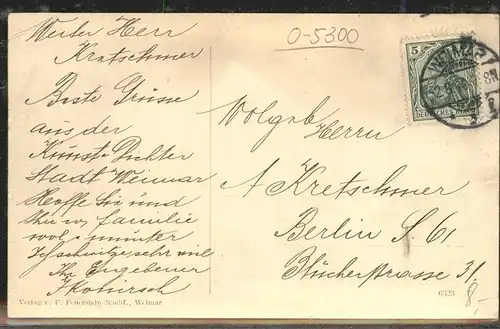 O-5300
Werter Herr
Kretschmer
Beste Grüsse
aus der
Kunst-Dichter
Stadt Weimar
Hoffe Sie und
Ihre w. familie
wol u. munter
Ich schwitze sehr viel
Ihr Ergebener
Verlag v. F. Feuerstein Nachf., Weimar
5
WEIMAR
DEUTSCHES
Wolgeb
Herrn
A Kretschmer
Berlin S 61
Blücherstrasse 31
8,-
6323